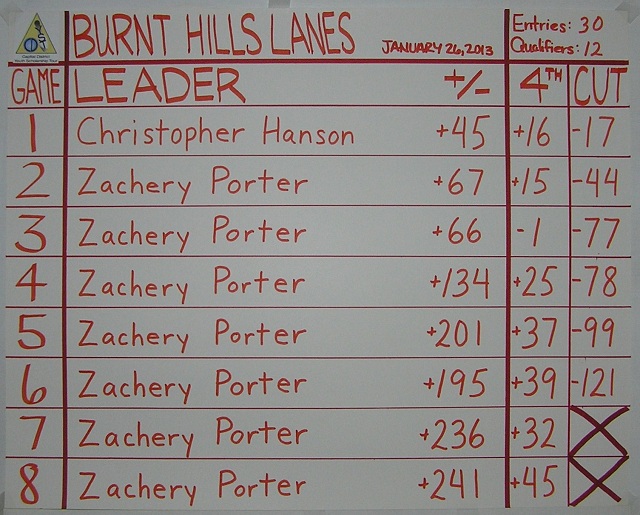 BURNT HILLS LANES JANUARY 26, 2013 Entries: 30
Qualifiers: 12
Capital District
Youth Scholarship Tour
GAME LEADER +/- 4TH CUT
1 Christopher Hanson +45 +16 -17
2 Zachery Porter +67 +15 -44
3 Zachery Porter +66 -1 -77
4 Zachery Porter +134 +25 -78
5 Zachery Porter +201 +37 -99
6 Zachery Porter +195 +39 -121
7 Zachery Porter +236 +32 X
8 Zachery Porter +241 +45 X